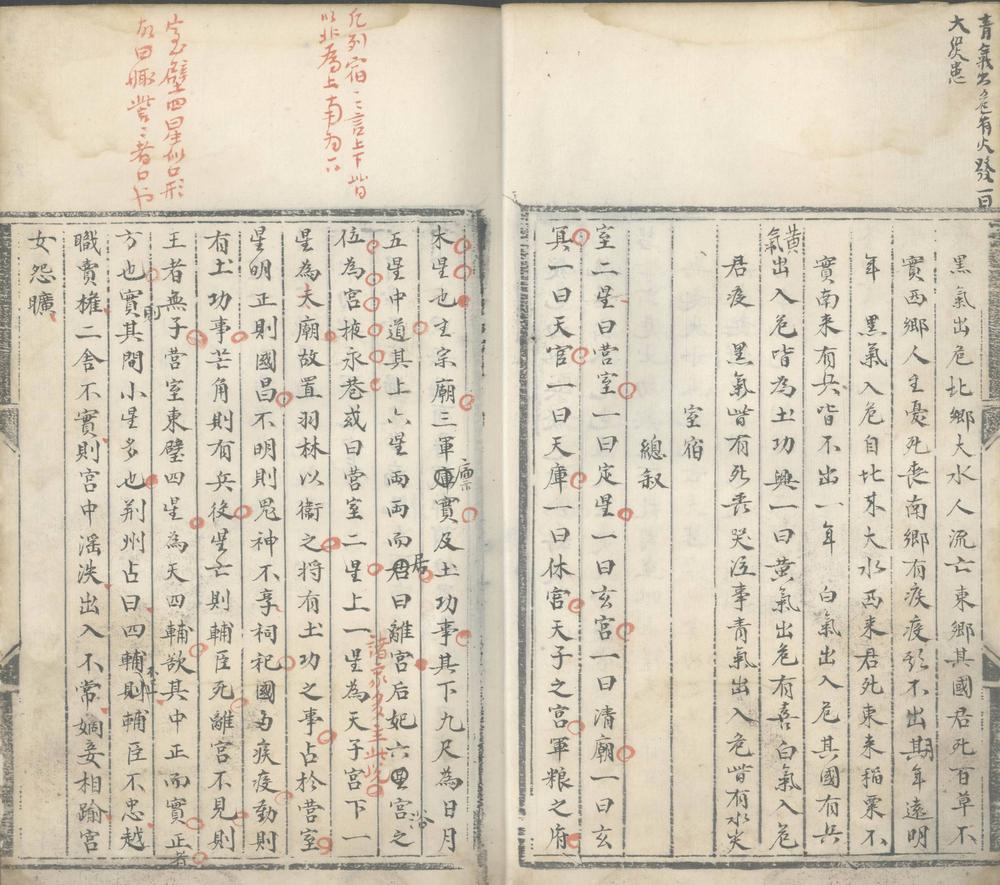 青氣出危有火發一曰
大災患
黑氣出危北鄉大水人流亡東鄉其國君死百草不
實西鄉人主憂死喪南鄉有疾疫期不出期年遠明
年　黑氣入危自北來大水西來君死東來稻粟不
實南來有兵皆不出一年　白氣出入危其國有兵
黃氣出入危皆為土功興一曰黃氣出危有喜白氣入危
君疫　黑氣皆有死喪哭泣事青氣出入危皆有水災
室宿
總叙
室二星曰營室一曰定星一曰玄宮一曰清廟一曰玄
冥一曰天官一曰天庫一曰休宮天子之宮軍粮之府
凡列宿之言上下皆
以北為上南為下
室壁四星似口形
故曰娵訾訾者口也
木星也主宗廟三軍廩實及土功事其下九尺為日月
五星中道其上六星兩兩而居曰離宮后妃六宮之
位為宮掖永巷或曰營室二星上一星為天子宮下一
諸家多主此說
星為夫廟故置羽林以衛之將有土功之事占於營室
星明正則國昌不明則鬼神不享祠祀國為疾疫動則
有土功事芒角則有兵役星亡則輔臣死離宮不見則
王者無子營室東壁四星為天四輔欲其中正而實正者
方也實其間小星多也荆州占曰四輔不正則輔臣不忠越
職賣權二舍不實則宮中滛泆出入不常嫡妾相踰宮
女怨曠